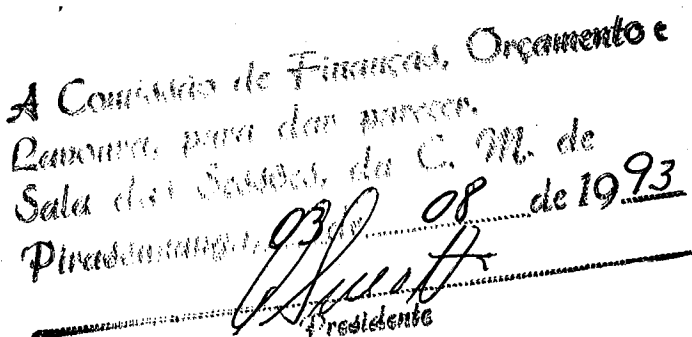 A Comissão de Finanças, Orçamento e
Lavoura, para dar parecer.
Sala das Sessões, da C. M. de
Pirassununga, 03 de 08 de 1993
Presidente